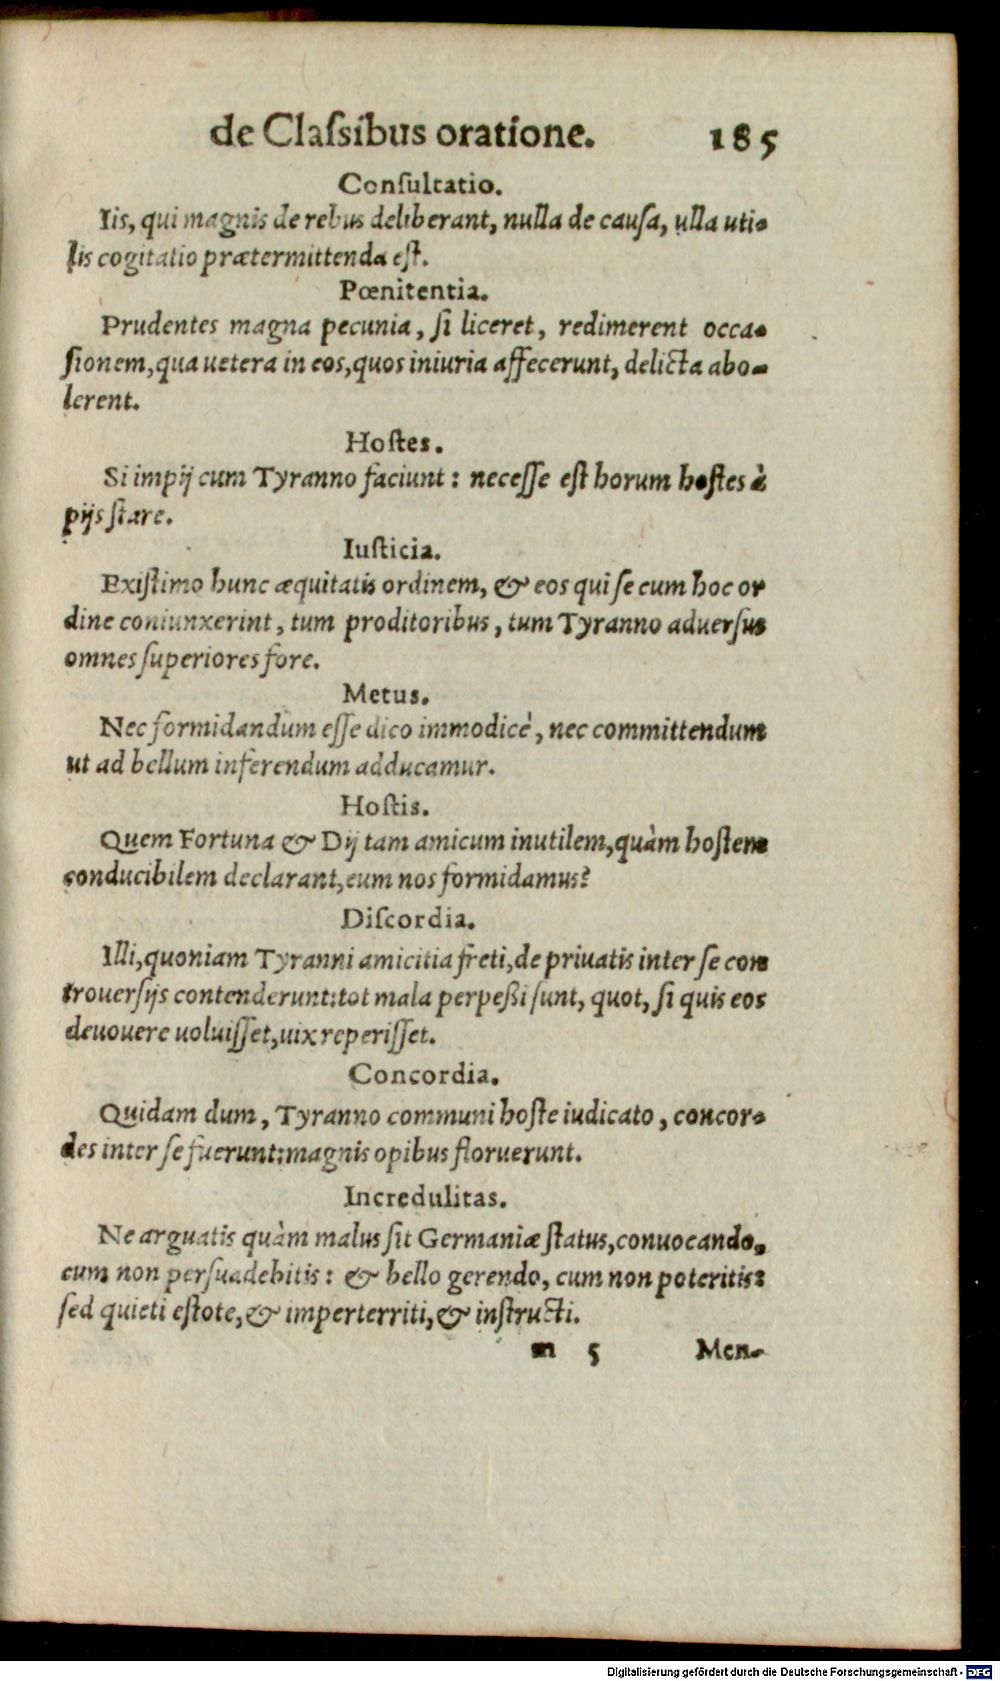 de Claſsibus oratione. 185
Conſultatio.
Iis, qui magnis de rebus deliberant, nulla de cauſa, ulla uti-
lis cogitatio prætermittenda eſt.
Pœnitentia.
Prudentes magna pecunia, ſi liceret, redimerent occa-
ſionem, qua uetera in eos, quos iniuria affecerunt, delicta abo-
lerent.
Hoſtes.
Si impij cum Tyranno faciunt: neceſſe eſt horum hoſtes à
pijs ſtare.
Iuſticia.
Exiſtimo hunc æquitatis ordinem, & eos qui ſe cum hoc or
dine coniunxerint, tum proditoribus, tum Tyranno aduerſus
omnes ſuperiores fore.
Metus.
Nec formidandum eſſe dico immodicè, nec committendum
ut ad bellum inferendum adducamur.
Hoſtis.
Quem Fortuna & Dij tam amicum inutilem, quàm hoſtem
conducibilem declarant, eum nos formidamus?
Diſcordia.
Illi, quoniam Tyranni amicitia freti, de priuatis inter ſe con
trouerſijs contenderunt: tot mala perpeßi ſunt, quot, ſi quis eos
deuouere uoluiſſet, uix reperiſſet.
Concordia.
Quidam dum, Tyranno communi hoſte iudicato, concor-
des inter ſe fuerunt: magnis opibus floruerunt.
Incredulitas.
Ne arguatis quàm malus ſit Germaniæ ſtatus, conuocando,
cum non perſuadebitis: & bello gerendo, cum non poteritis:
ſed quieti eſtote, & imperterriti, & inſtructi.
m 5 Men-
Digitalisierung gefördert durch die Deutsche Forschungsgemeinschaft - DFG